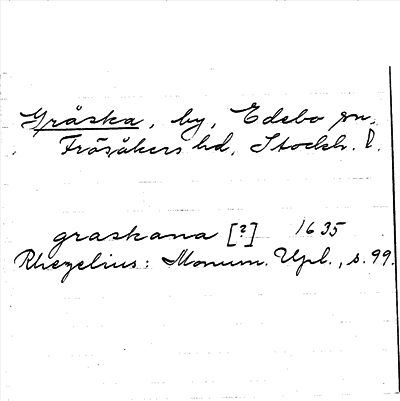 Gräska, by, Edebo sn,
Frösåkers hd, Stockh. l.
graskana [?] 1635
Rhezelius: Monum. Upl., s. 99.